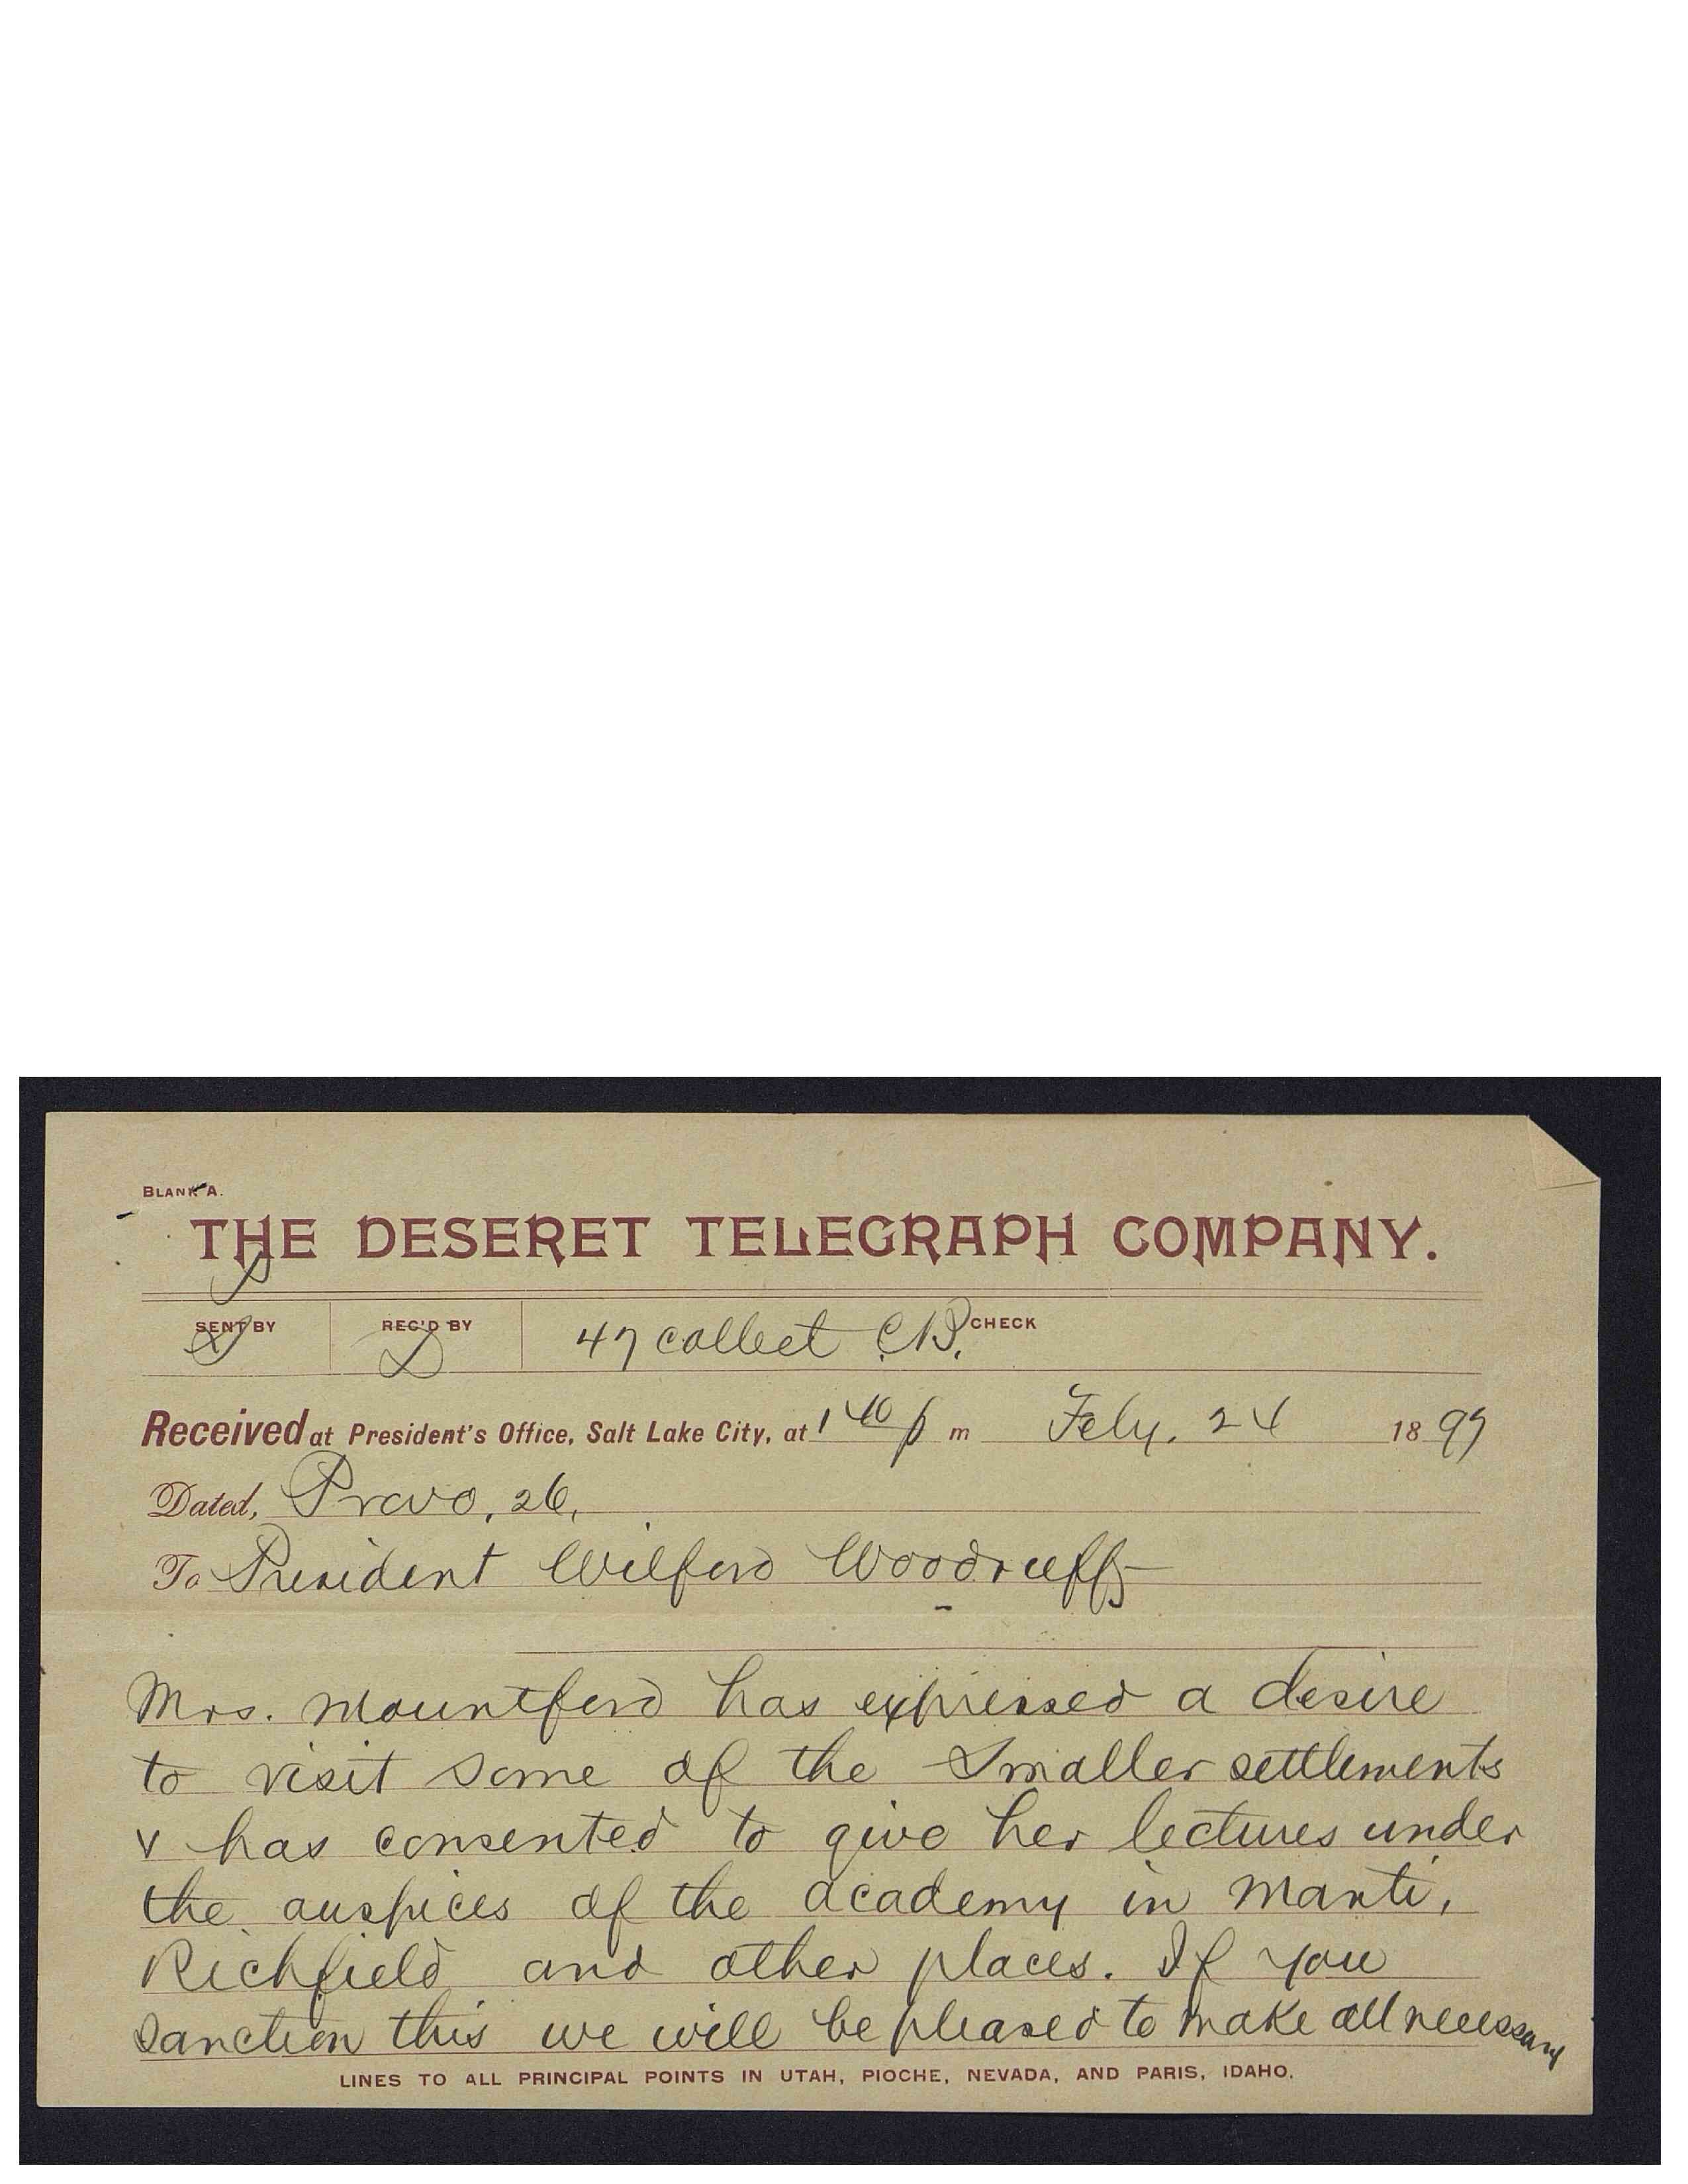 BLANK A.
THE DESERET TELEGRAPH COMPANY.
SENT BY REC'D BY 47 collect CHECK
Received at President's Office, Salt Lake City, at 1 40 p m Feby. 24 1897
Dated, Provo, 26,
To President Wilford Woodruff
Mrs. Mountford has expressed a desire
to visit some of the smaller settlements
& has consented to give her lectures under
the auspices of the academy in Manti,
Richfield and other places. If you
sanction this we will be pleased to make all necessary
LINES TO ALL PRINCIPAL POINTS IN UTAH, PIOCHE, NEVADA, AND PARIS, IDAHO.